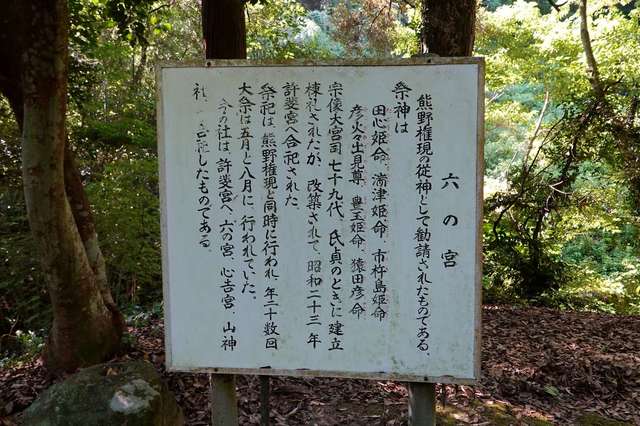 六の宮
熊野権現の従神として勧請されたものである。
祭神は
田心姫命、湍津姫命、市杵島姫命
彦火々出見尊、豊玉姫命、猿田彦命
宗像大宮司七十九代、氏貞のときに建立
棟札されたが、改築されて、昭和二十三年
許斐宮へ合祀された。
祭祀は、熊野権現と同時に行われ、年二十数回
大祭は五月と八月に、行われていた。
今の社は、許斐宮へ、六の宮、心吉宮、山神
社、合祀したものである。